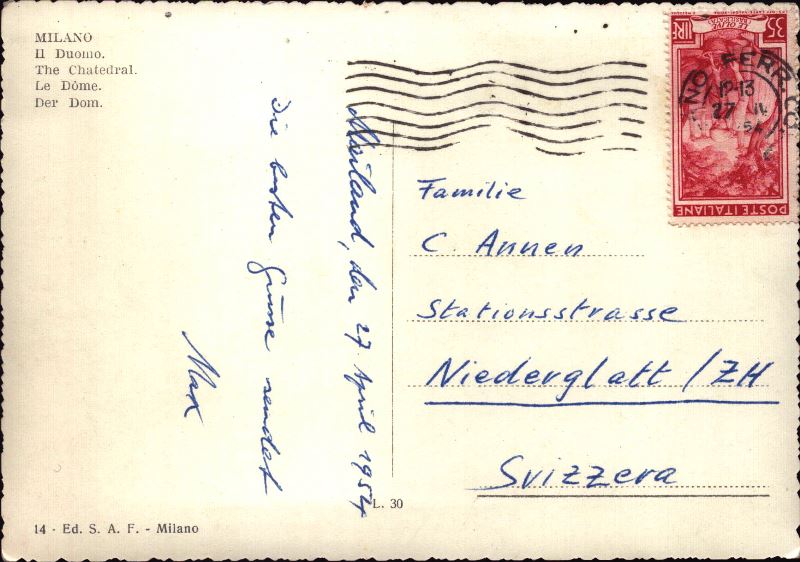 MILANO
Il Duomo.
The Chatedral.
Le Dôme.
Der Dom.
Mailand, den 27 April 1954
Die besten Grüsse sendet
Max
Familie
C. Annen
Stationsstrasse
Niederglatt / ZH
Svizzera
35 LIRE
POSTE ITALIANE
FERR
12-13
27
54
L. 30
14 - Ed. S. A. F. - Milano